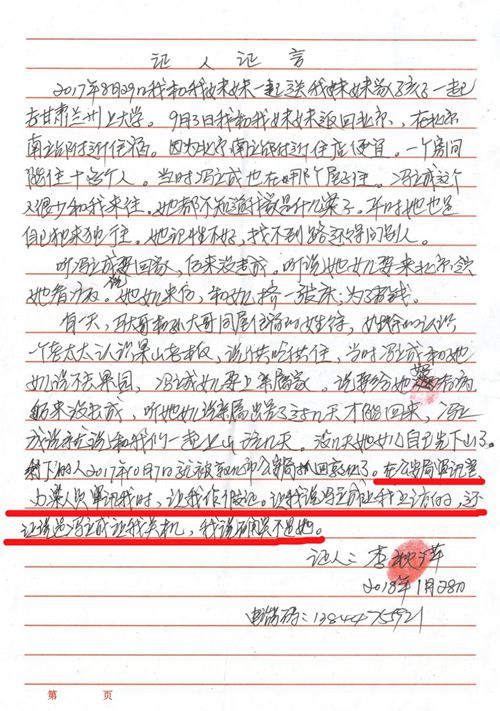 证人证言
2017年8月29日我和我妹妹一起送我妹妹家孩子一起
去甘肃兰州上大学。9月3日我和我妹妹返回北京,在北京
南站附近住宿。因为北京南站附近住店便宜。一个房间
能住十多个人。当时冯立成也在那个店住。冯立成这个
人很少和我来往。她都不知道我家是什么样子。平时她也是
自己独来独往。她记性不好,找不到路还得问别人。
听冯立成要回家,后来没走成。听说她女儿要来北京给
她看病。她女儿来后,和女儿挤一张床,为了省钱。
有一天,大哥和孙大哥同屋住宿的姓徐,她给们认识
一个老太太认识果山老板,说供吃供住,当时冯立成和她
女儿说不去果园,冯立成女儿要上亲属家,说要给她看病
后来没去成,听她女儿说亲属出差了过几天才能回来,冯立
成说在和我们一起上山待几天。没几天她女儿自己先下山了。
剩下的人2017年10月7日就被公安局抓回了。在公安局审讯室,
办案人员审讯我时,让我作假证。让我说冯立成让我上访的,还
让说是冯立成让我关机,我说确实不是她。
证人:李
2018年1月28日
电话号码:
第 页